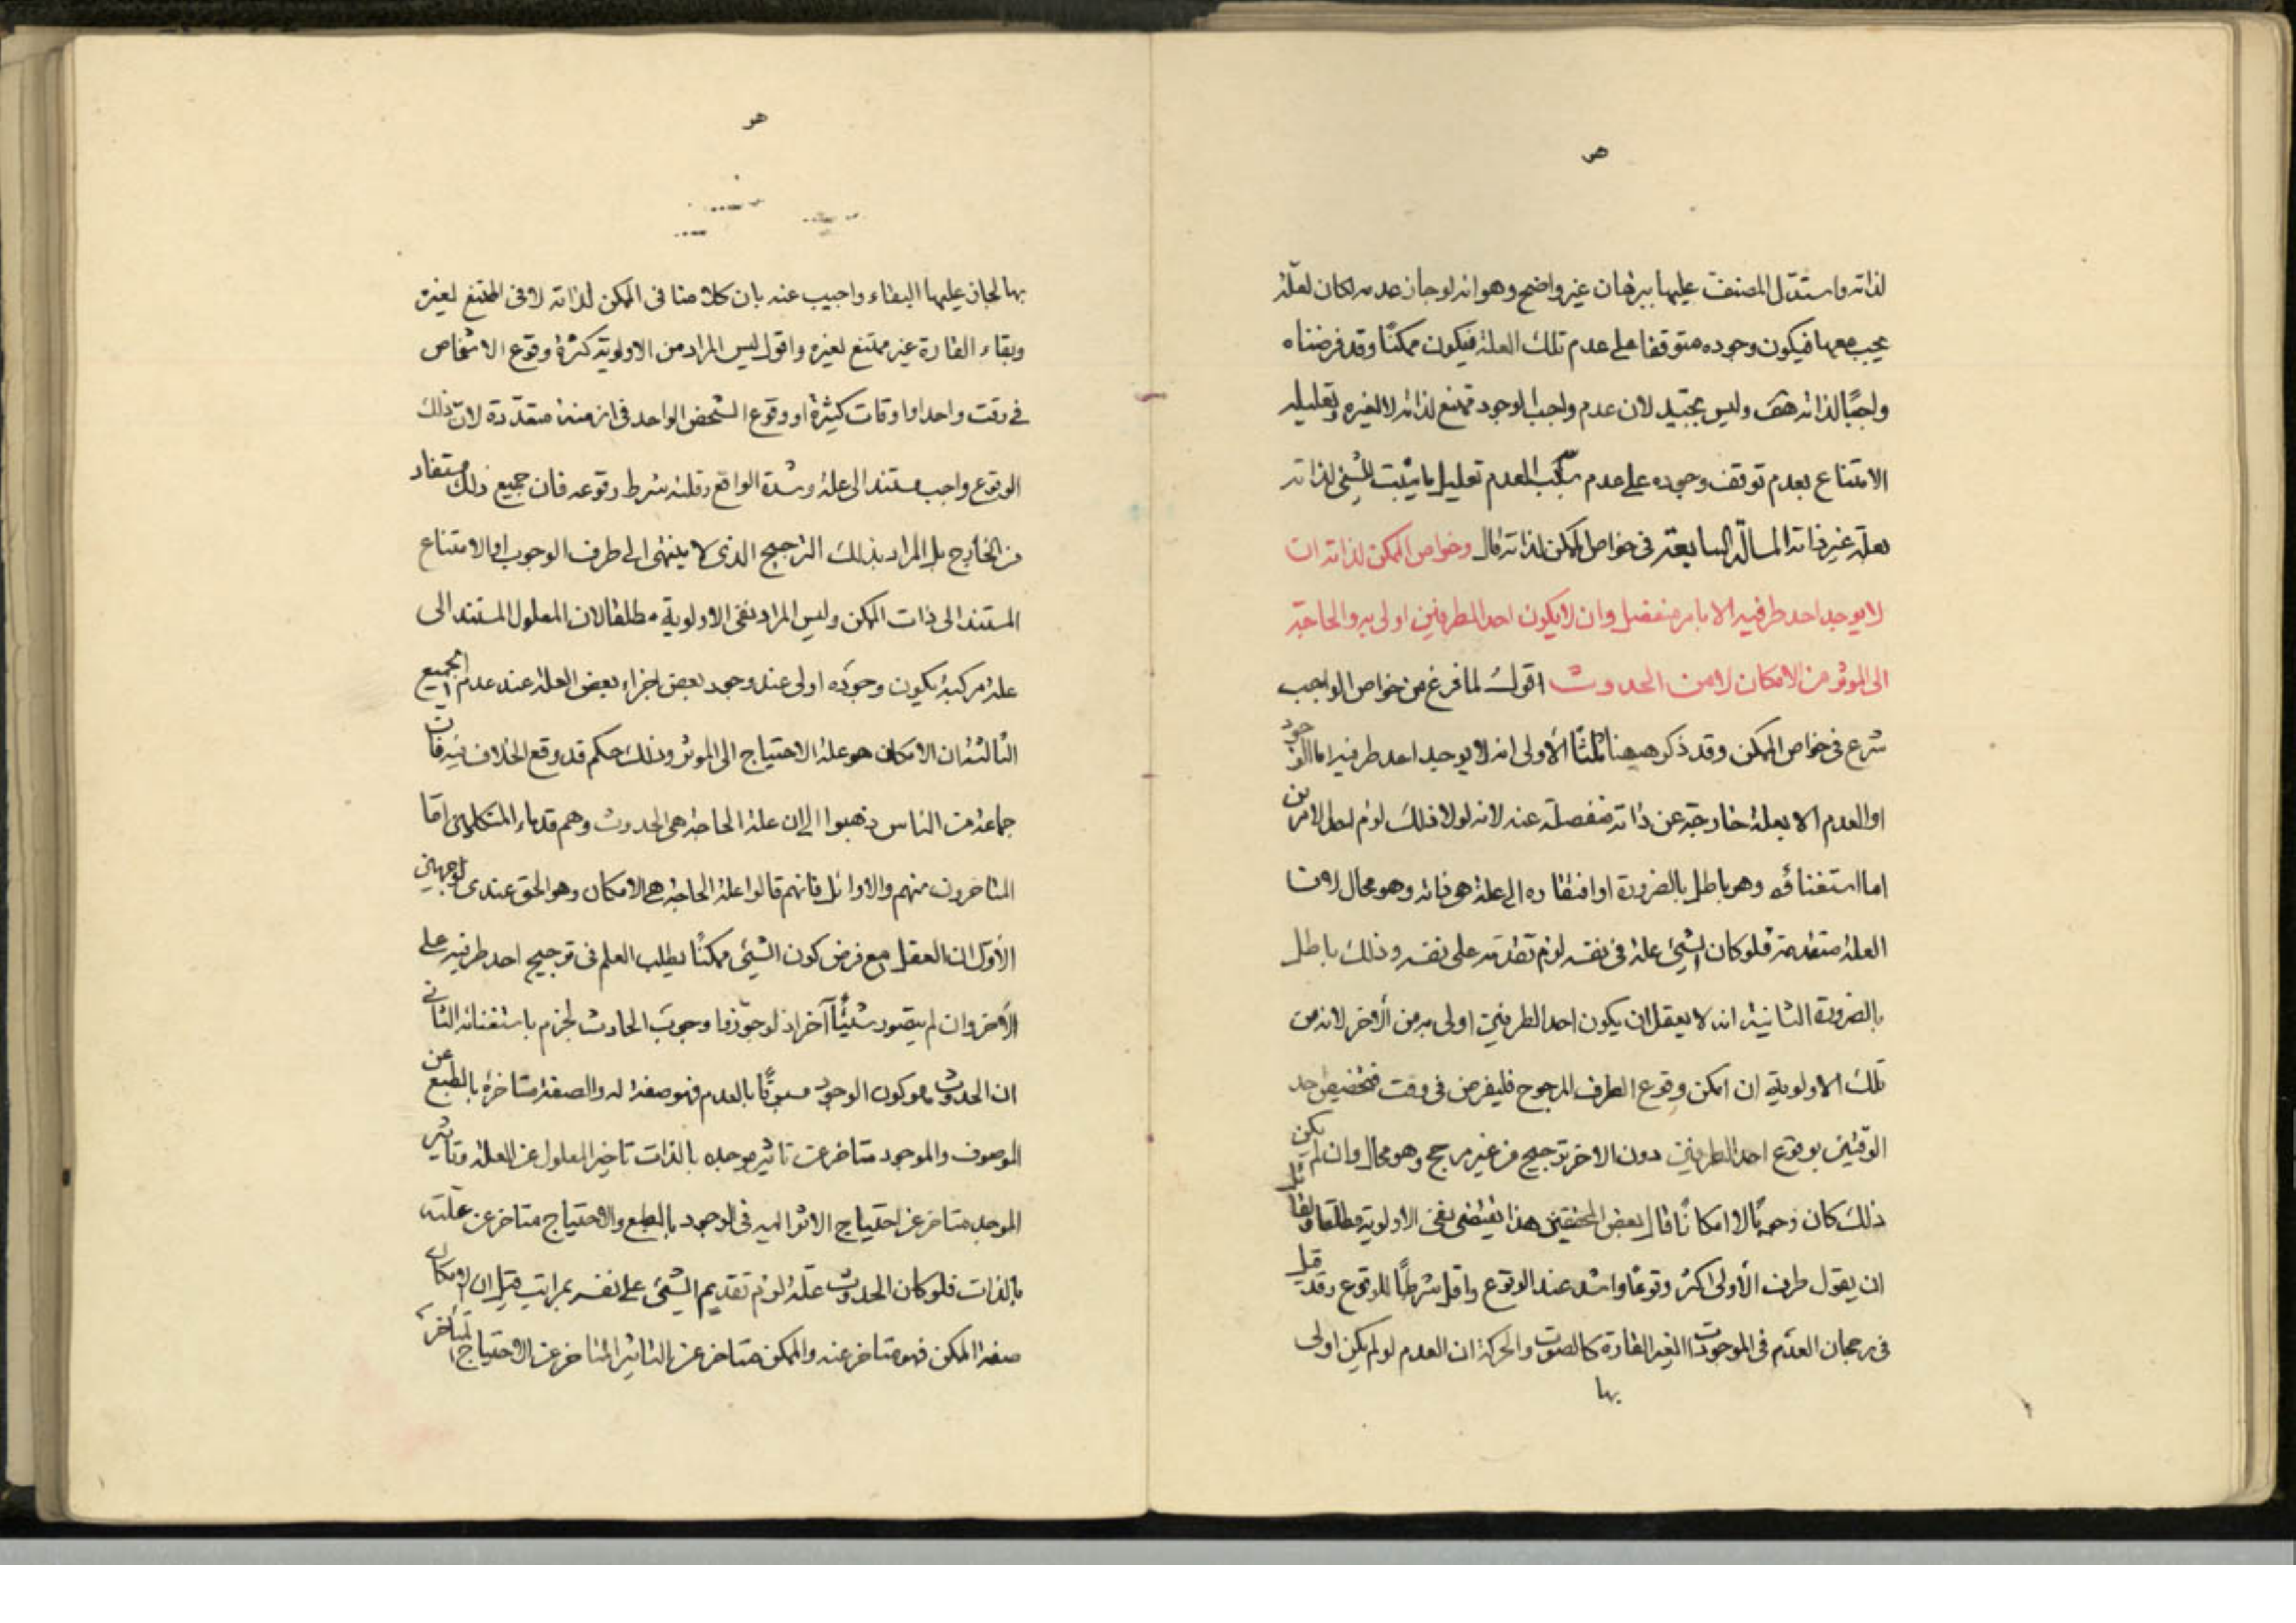 هو
لذاته واستدل المصنف عليها ببرهان غير واضح وهو انه لو جاز عدمه لكان لعلة
يجب معها فيكون وجوده متوقفا على عدم تلك العلة فيكون ممكنًا وقد فرضناه
واجبًا لذاته هف وليس بجيّد لان عدم واجب الوجود ممتنع لذاته لا لغيره وتعليله
الامتناع بعدم توقف وجوده على عدم سبب العدم تعليل ما يثبت للشئ لذاته
بعلة غير ذاته المسالة السابعة في خواص الممكن لذاته قال وخواص الممكن لذاته ان
لا يوجد احد طرفيه الا بامر منفصل وان لا يكون احد الطرفين اولى به والحاجة
الى الموثر من الامكان لا من الحدوث اقول لما فرغ من خواص الواجب
شرع في خواص الممكن وقد ذكر هيهنا ثلثًا الاولى انه لا يوجد احد طرفيه اما الوجود
او العدم الا بعلة خارجة عن ذاته منفصلة عنه لانه لولا ذلك لزم احد الامرين
اما استغنائه وهو باطل بالضرورة او افتقاره الى علة هى ذاته وهو محال لان
العلة متقدمة فلو كان الشئ علة في نفسه لزم تقدمه على نفسه وذلك باطل
بالضرورة الثانية انه لا يعقل ان يكون احد الطرفين اولى به من الاخر لانه من
تلك الاولوية ان امكن وقوع الطرف المرجوح فليفرض في وقت فتخصيص احد
الوقتين بوقوع احد الطرفين دون الاخر ترجيح من غير مرجح وهو محال وان لم يكن
ذلك كان وجوبًا لا امكانًا قال بعض المحققين هذا يقتضى نفى الاولوية مطلقا ولقائل
ان يقول طرف الاولى اكثر وقوعًا واشد عند الوقوع واقل شرطًا للوقوع وقد قيل
في رجحان العدم في الموجودات الغير القارة كالصوت والحركة ان العدم لو لم يكن اولى
بها
هو
بها لجاز عليها البقاء واجيب عنه بان كلامنا في الممكن لذاته لا في الممتنع لغيره
وبقاء القارة غير ممتنع لغيره واقول ليس المراد من الاولوية كثرة وقوع الاشخاص
في وقت واحد او اوقات كثيرة او وقوع الشخص الواحد في ازمنة متعددة لان ذلك
الوقوع واجب مستند الى علة وشدة الواقع وقلة شرط وقوعه فان جميع ذلك مستفاد
من الخارج بل المراد بذلك الترجيح الذى لا ينتهى الى طرف الوجوب او الامتناع
المستند الى ذات الممكن وليس المراد نفى الاولوية مطلقا لان المعلول المستند الى
علة مركبة يكون وجوده اولى عند وجود بعض اجزاء بعض العلة عند عدم الجميع
الثالثة ان الامكان هو علة الاحتياج الى الموثر وذلك حكم قد وقع الخلاف فيه فان
جماعة من الناس ذهبوا الى ان علة الحاجة هى الحدوث وهم قدماء المتكلمين اما
المتاخرون منهم والاوائل فانهم قالوا علة الحاجة هي الامكان وهو الحق عندى لوجهين
الاول ان العقل مع فرض كون الشئ ممكنًا يطلب العلم في ترجيح احد طرفيه على
الاخر وان لم يتصور شيئًا آخر اذ لو جوزنا وجوب الحادث لجزم باستغنائه الثاني
ان الحدوث هو كون الوجود مسبوقًا بالعدم فهو صفة له والصفة متاخرة بالطبع عن
الموصوف والموجود متاخر عن تاثير موجده بالذات تاخير المعلول عن العلة وتاثير
الموجد متاخر عن احتياج الاثر اليه في الوجود بالطبع والاحتياج متاخر عن علته
بالذات فلو كان الحدوث علة لزم تقديم الشئ على نفسه بمراتب قيل ان الامكان
صفة الممكن فهو متاخر عنه والممكن متاخر عن التاثير المتاخر عن الاحتياج المتأخر